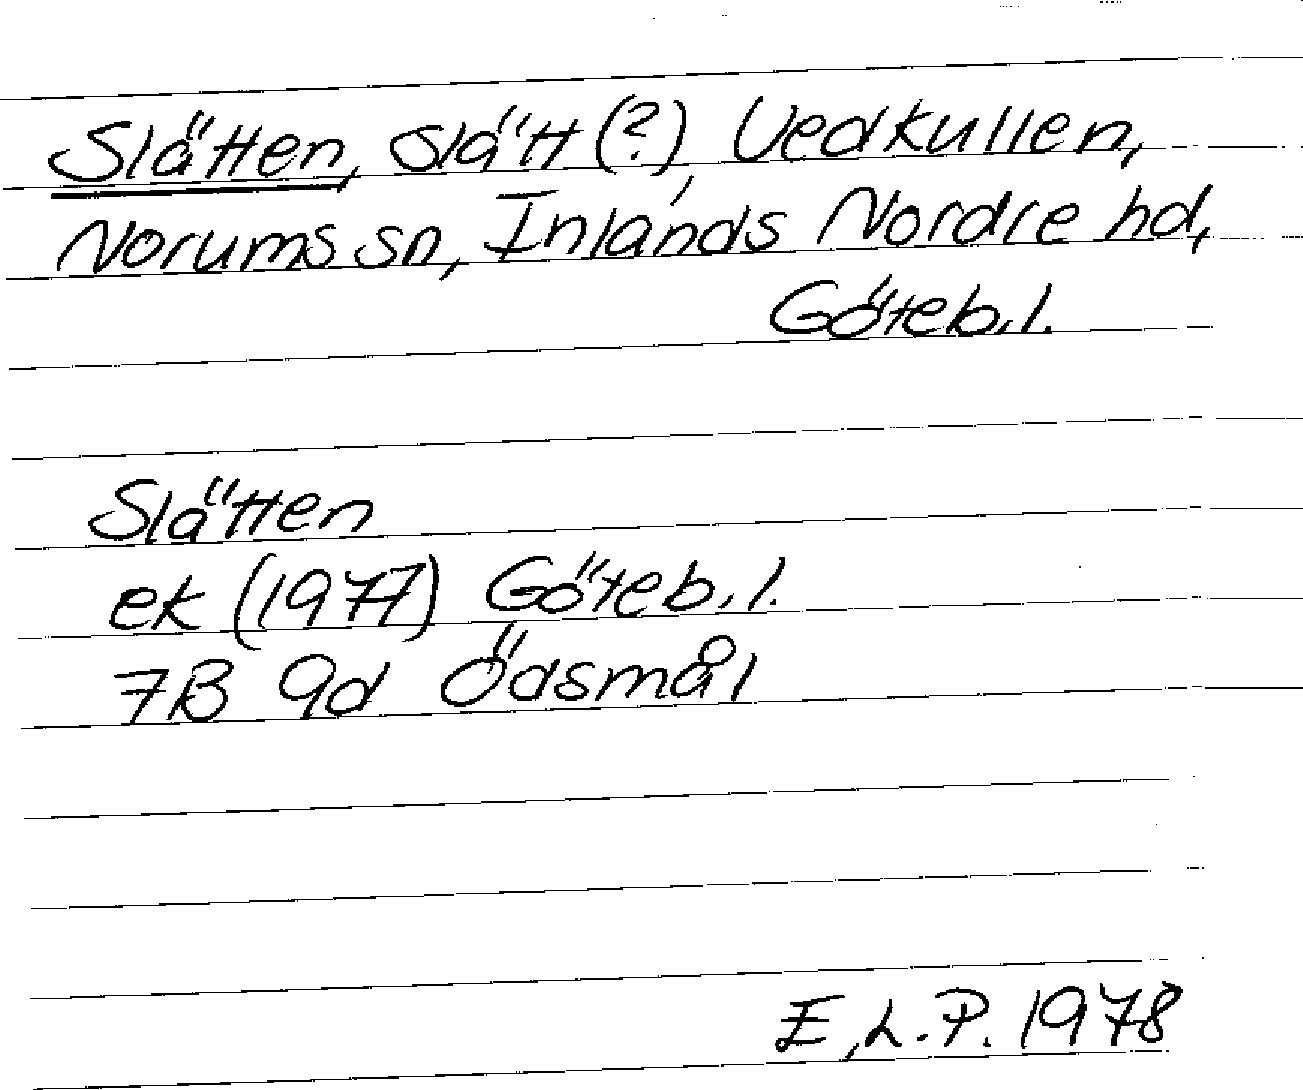 Slätten, slätt (?) Vedkullen,
Norums sn, Inlands Nordre hd,
Göteb. l.
Slätten
ek (1977) Göteb. l.
7B 9d Ödsmål
E.L.P. 1978